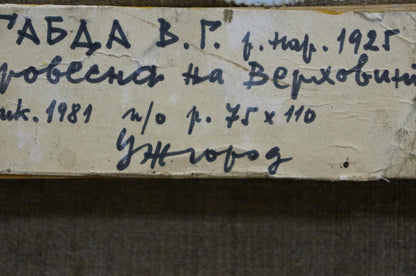 ГАБДА В.Г. р.нар. 1925
ровесна на Верховині
ик. 1981 п/о р. 75 х 110
Ужгород